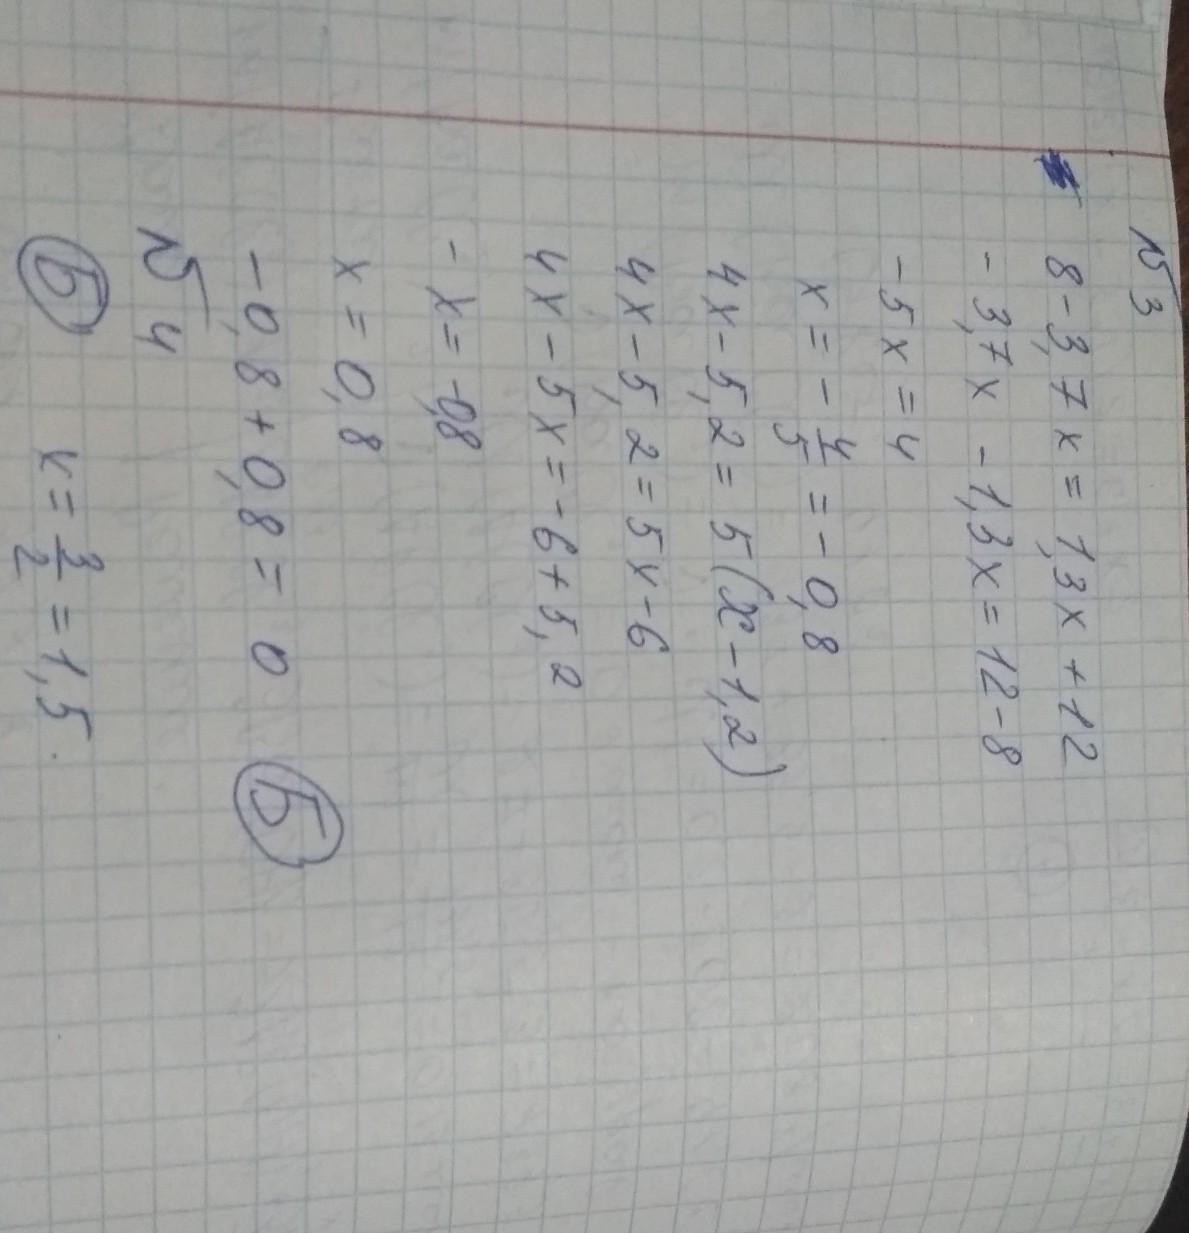 №3
8-3,7x=1,3x+12
-3,7x-1,3x=12-8
-5x=4
x=-4/5=-0,8
4x-5,2=5(x-1,2)
4x-5,2=5x-6
4x-5x=-6+5,2
-x=-0,8
x=0,8
-0,8+0,8=0 Б
№4
Б x=3/2=1,5.